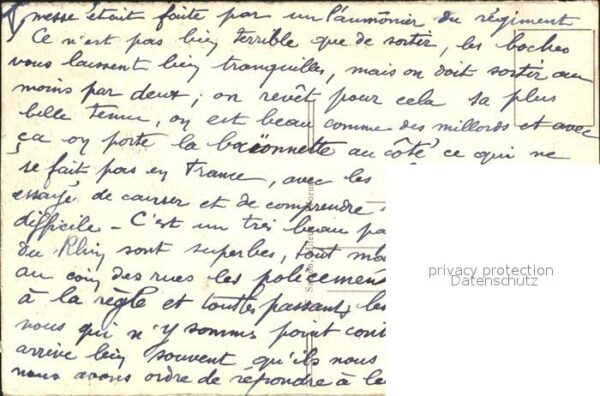 messe était faite par un l'aumônier du régiment
Ce n'est pas bien terrible que de sortir, les boches
vous laissent bien tranquilles, mais on doit sortir au
moins par deux; on revêt pour cela sa plus
belle tenue, on est beau comme des millords et avec
ça on porte la baïonnette au côté ce qui ne
se fait pas en France, avec les
essayé de causer et de comprendre
difficile - C'est un très beau pa
du Rhin sont superbes, tout
au coin des rues les policemen
à la règle et tous les passants, les
nous qui n'y sommes point
arrive bien souvent qu'ils nous
nous avons ordre de répondre à
privacy protection
Datenschutz